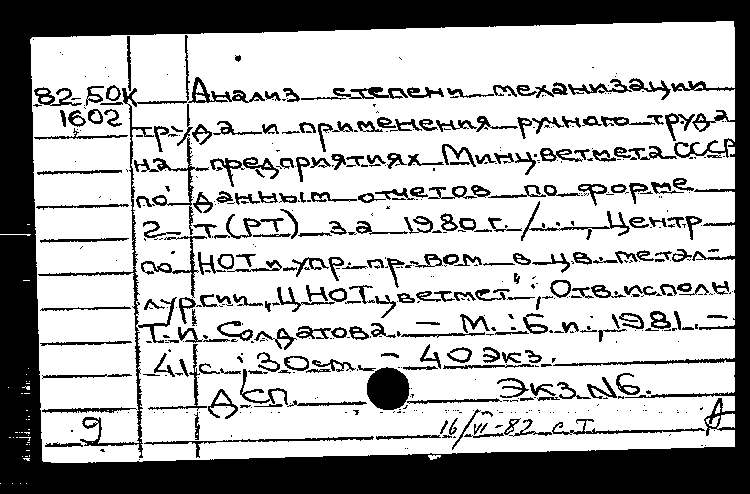 82-50К Анализ степени механизации
1602 труда и применения ручного труда
на предприятиях Минцветмета СССР
по данным отчетов по форме
2-т(РТ) за 1980 г. /..., Центр
по НОТ и упр. пр-вом в цв. метал-
лургии „ЦНОТцветмет"; Отв. исполн
Т.П. Солдатова. - М. : Б.и., 1981. -
41 с. ; 30 см. - 40 экз.
ДСП. Экз. N6.
9 16/VI-82 с.т. А